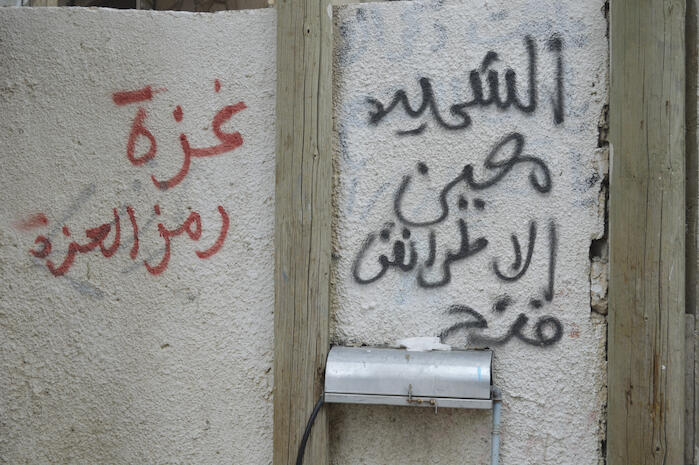 غزة
رمز العزة
الشهيد
معين
الاطرش
فتح